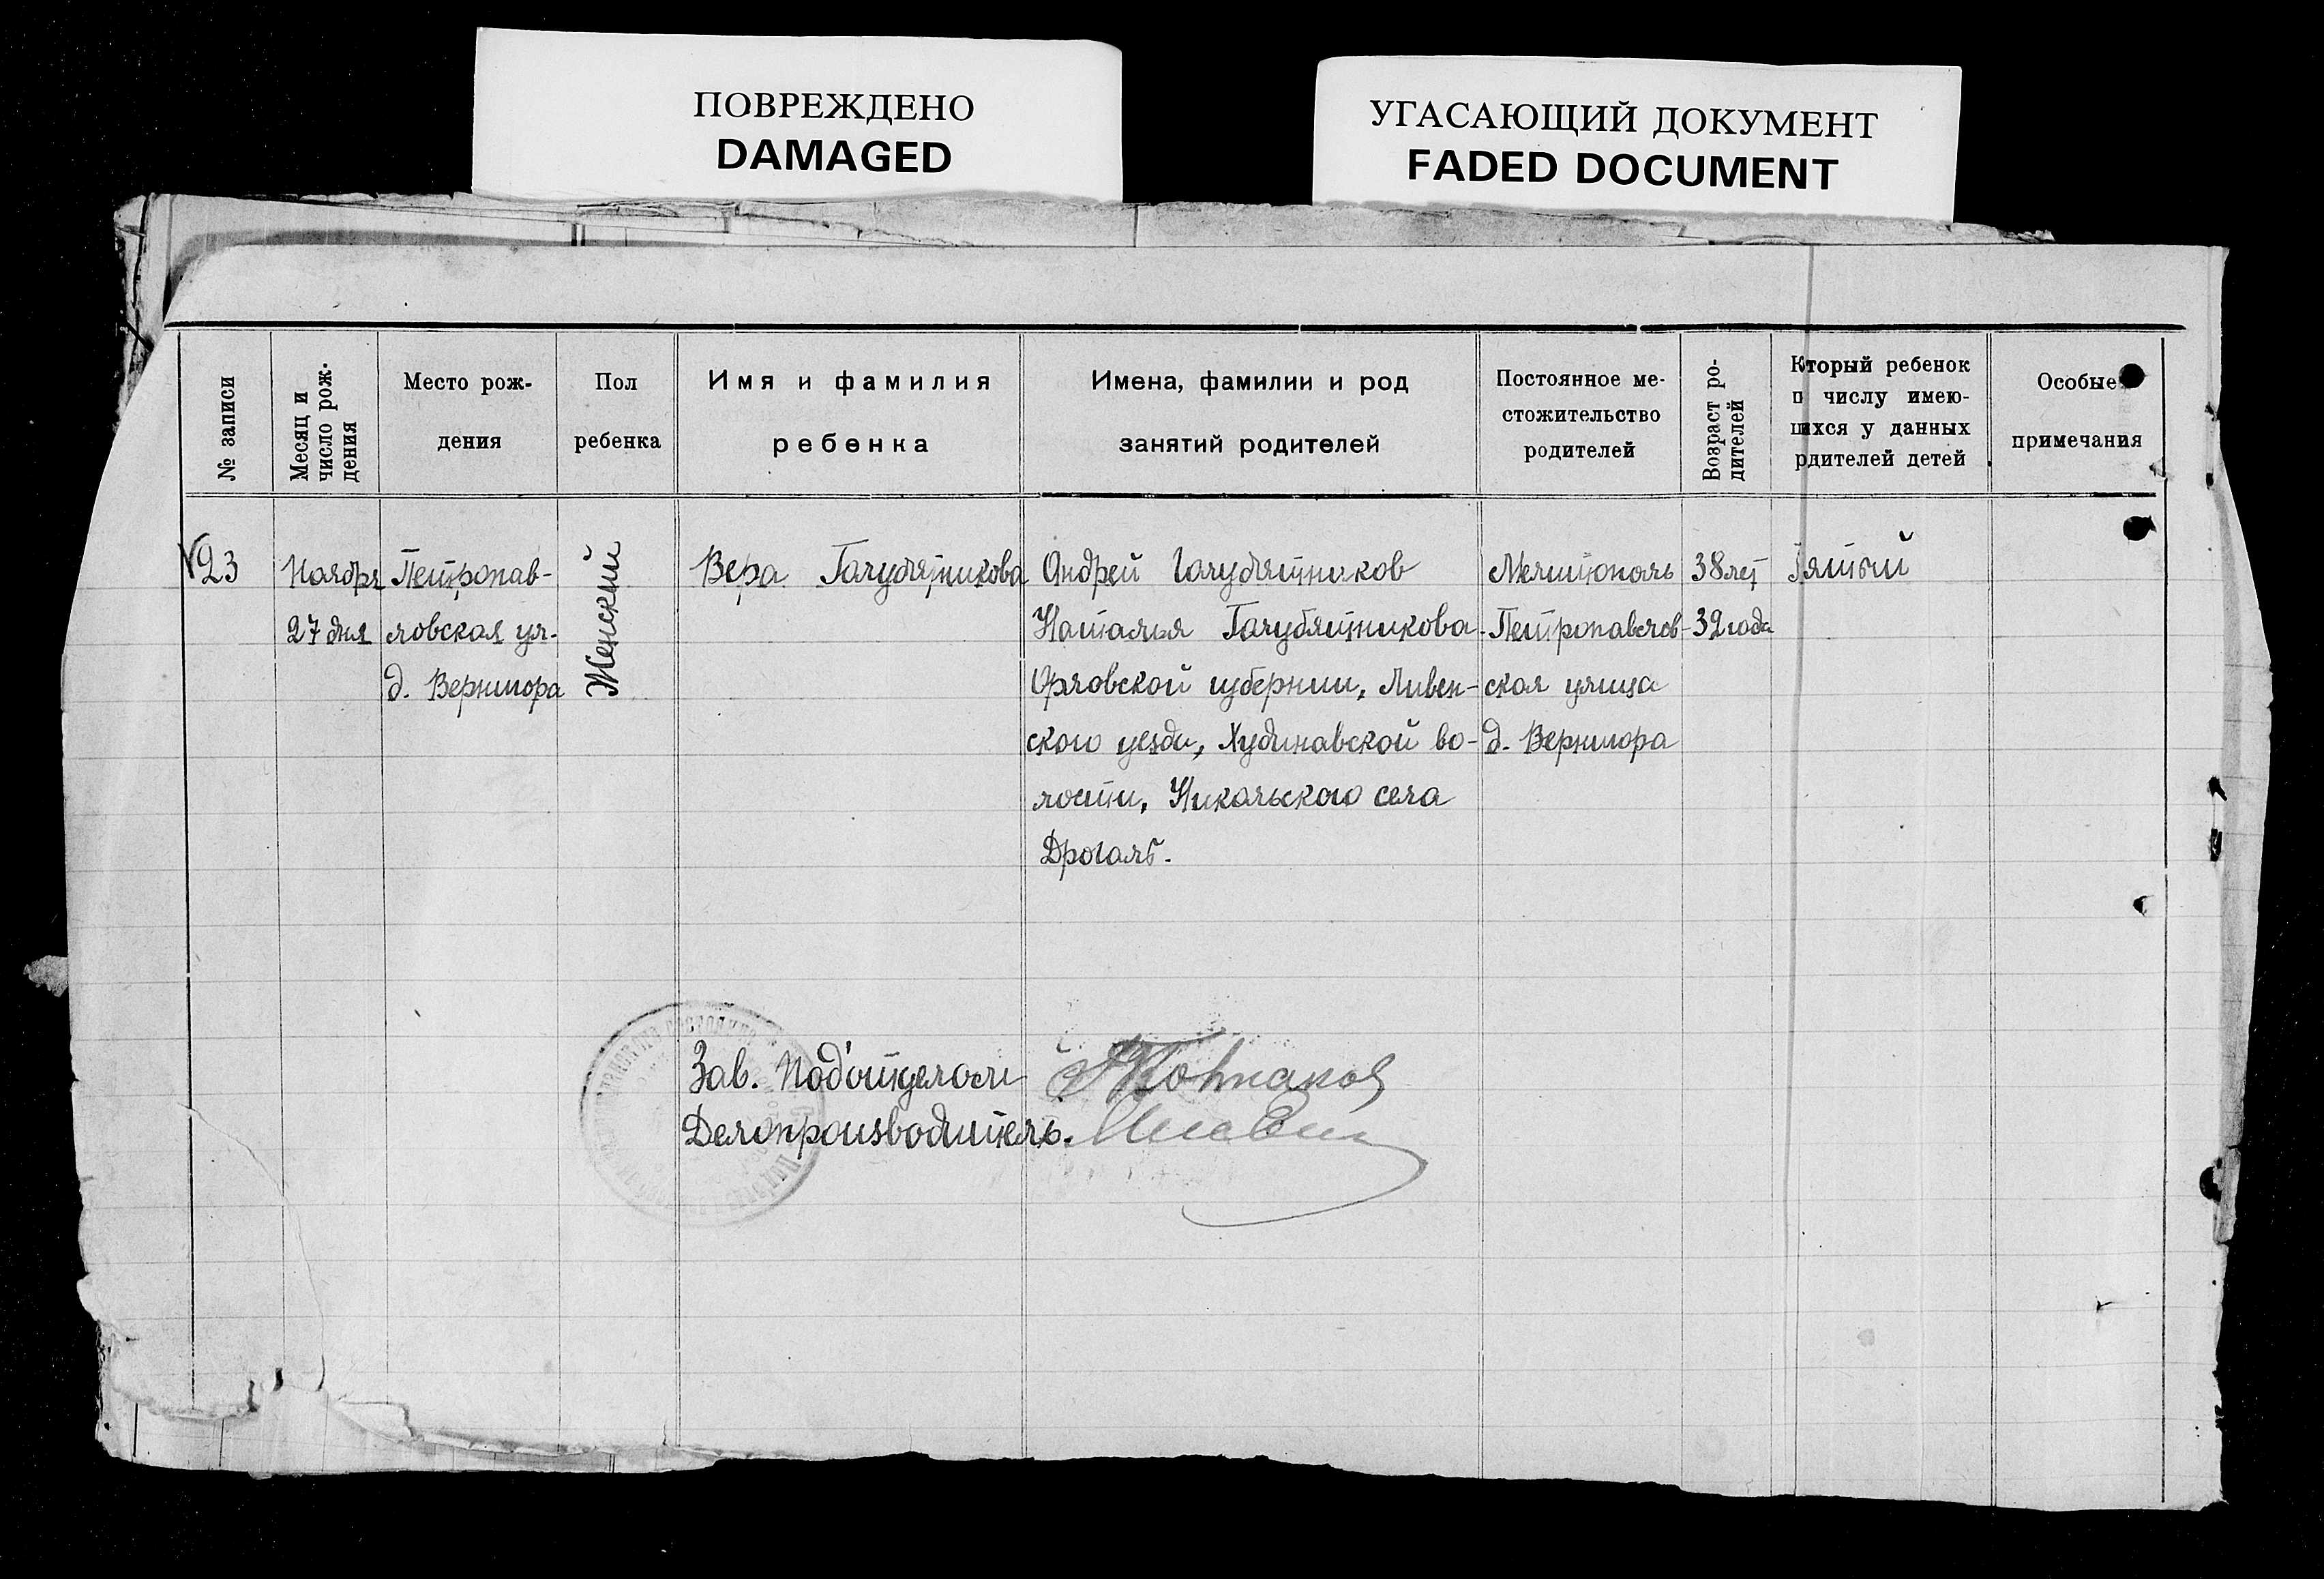 ПОВРЕЖДЕНО
DAMAGED
УГАСАЮЩИЙ ДОКУМЕНТ
FADED DOCUMENT
№ записи
Месяц и
число рож-
дения
Место рож-
дения
Пол
ребенка
Имя и фамилия
ребенка
Имена, фамилии и род
занятий родителей
Постоянное ме-
стожительство
родителей
Возраст ро-
дителей
Кторый ребенок
п числу имею-
щихся у данных
рдителей детей
Особые
примечания
23
Ноября
27 дня
Петропав-
ловская ул.
д. Вернигора
Женский
Вера Галубятникова
Андрей Галубятников
Наталья Галубятникова
Орловской губернии, Ливен-
ского уезда, Худинавской во-
лости, Никольского села
Дрогаль.
Мелитополь
Петропавлов-
ская улица
д. Вернигора
38 лет
32 года
Пятый
Зав. Под'отделом
Делопроизводитель.